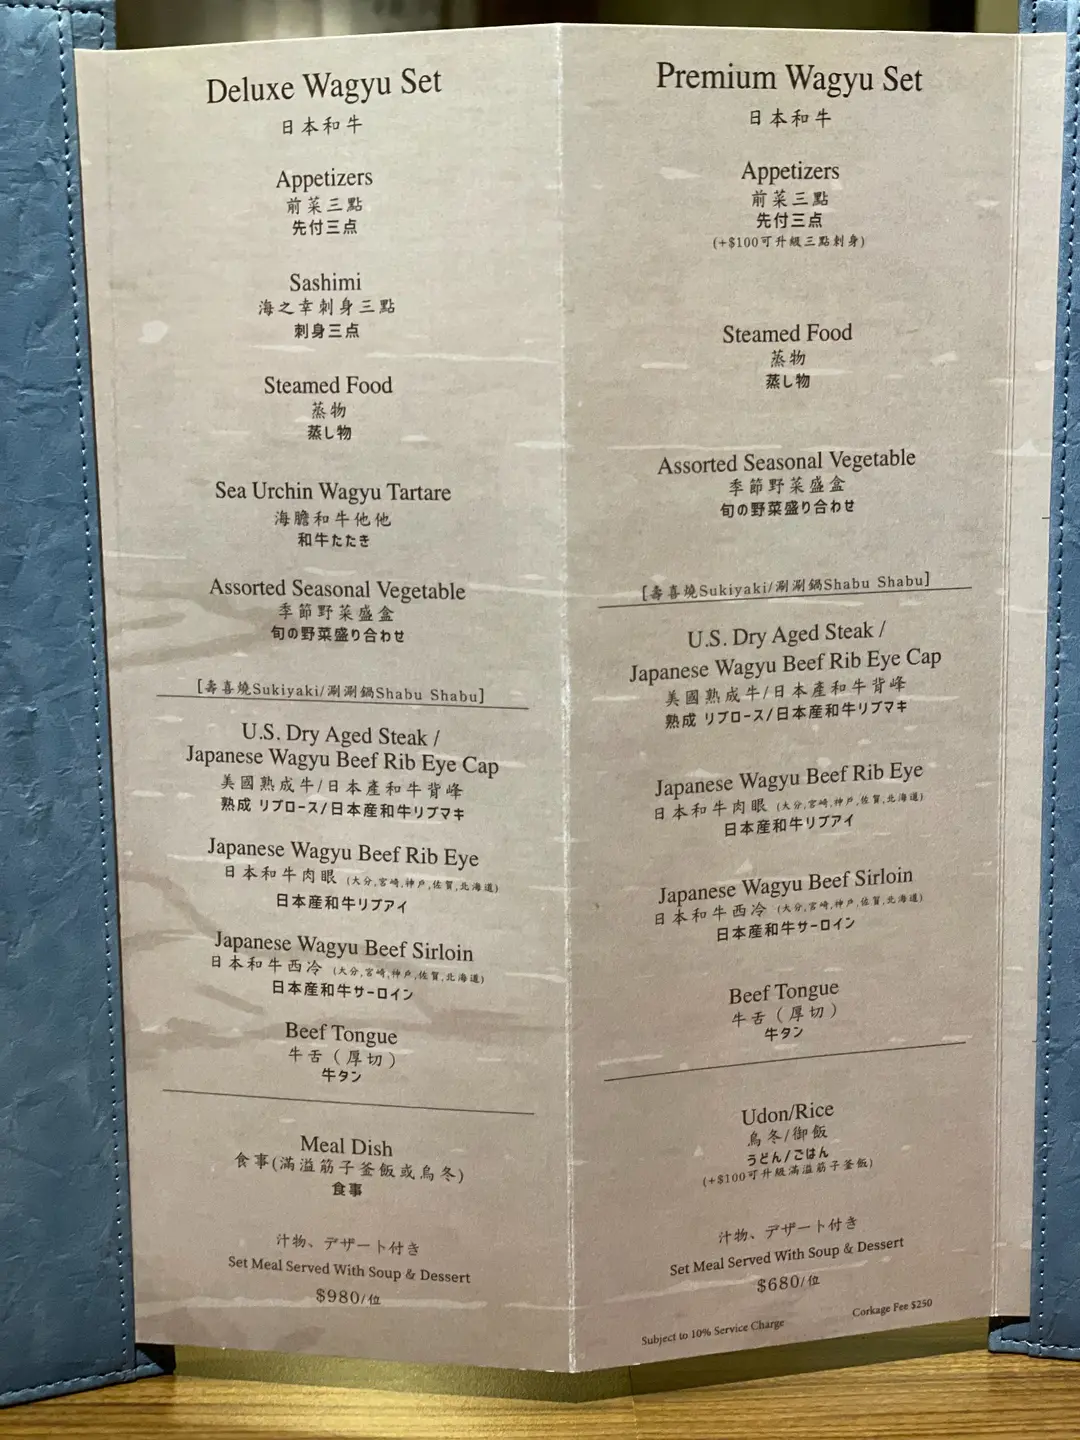 Deluxe Wagyu Set
日本和牛
Appetizers
前菜三點
先付三点
Sashimi
海之幸刺身三點
刺身三点
Steamed Food
蒸物
蒸し物
Sea Urchin Wagyu Tartare
海膽和牛他他
和牛たたき
Assorted Seasonal Vegetable
季節野菜盛盒
旬の野菜盛り合わせ
[壽喜燒Sukiyaki/涮涮鍋Shabu Shabu]
U.S. Dry Aged Steak /
Japanese Wagyu Beef Rib Eye Cap
美國熟成牛/日本產和牛背峰
熟成 リブロース/日本産和牛リブマキ
Japanese Wagyu Beef Rib Eye
日本和牛肉眼 (大分,宮崎,神戶,佐賀,北海道)
日本産和牛リブアイ
Japanese Wagyu Beef Sirloin
日本和牛西冷 (大分,宮崎,神戶,佐賀,北海道)
日本産和牛サーロイン
Beef Tongue
牛舌（厚切）
牛タン
Meal Dish
食事(滿溢筋子釜飯或烏冬)
食事
汁物、デザート付き
Set Meal Served With Soup & Dessert
$980/位
Premium Wagyu Set
日本和牛
Appetizers
前菜三點
先付三点
(+$100可升級三點刺身)
Steamed Food
蒸物
蒸し物
Assorted Seasonal Vegetable
季節野菜盛盒
旬の野菜盛り合わせ
[壽喜燒Sukiyaki/涮涮鍋Shabu Shabu]
U.S. Dry Aged Steak /
Japanese Wagyu Beef Rib Eye Cap
美國熟成牛/日本產和牛背峰
熟成 リブロース/日本産和牛リブマキ
Japanese Wagyu Beef Rib Eye
日本和牛肉眼 (大分,宮崎,神戶,佐賀,北海道)
日本産和牛リブアイ
Japanese Wagyu Beef Sirloin
日本和牛西冷 (大分,宮崎,神戶,佐賀,北海道)
日本産和牛サーロイン
Beef Tongue
牛舌（厚切）
牛タン
Udon/Rice
烏冬/御飯
うどん/ごはん
(+$100可升級滿溢筋子釜飯)
汁物、デザート付き
Set Meal Served With Soup & Dessert
$680/位
Subject to 10% Service Charge
Corkage Fee $250